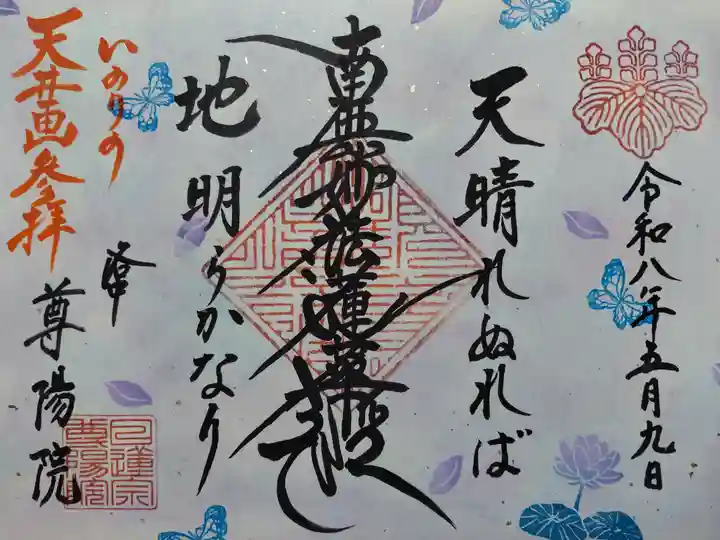 令和八年五月九日
天晴れぬれば
南無妙法蓮華経
地明らかなり
いのりの
天井画参拝
尊陽院
日蓮宗
尊陽院